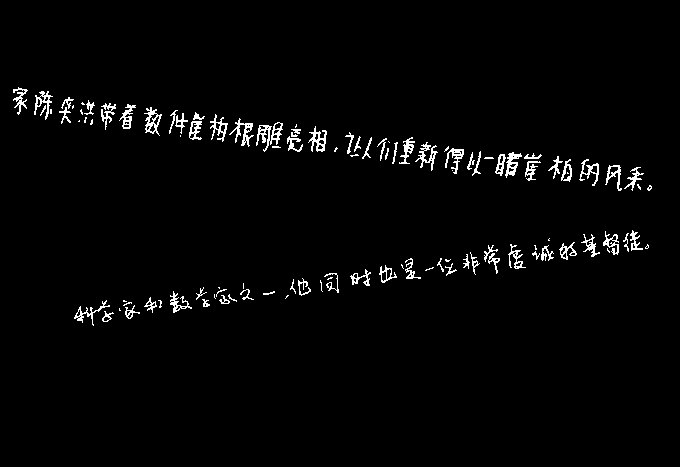 家陈奕洪带着数件崖柏根雕亮相，让人们重新得以一睹崖柏的风采。
科学家和数学家之一，他同时也是一位非常虔诚的基督徒。